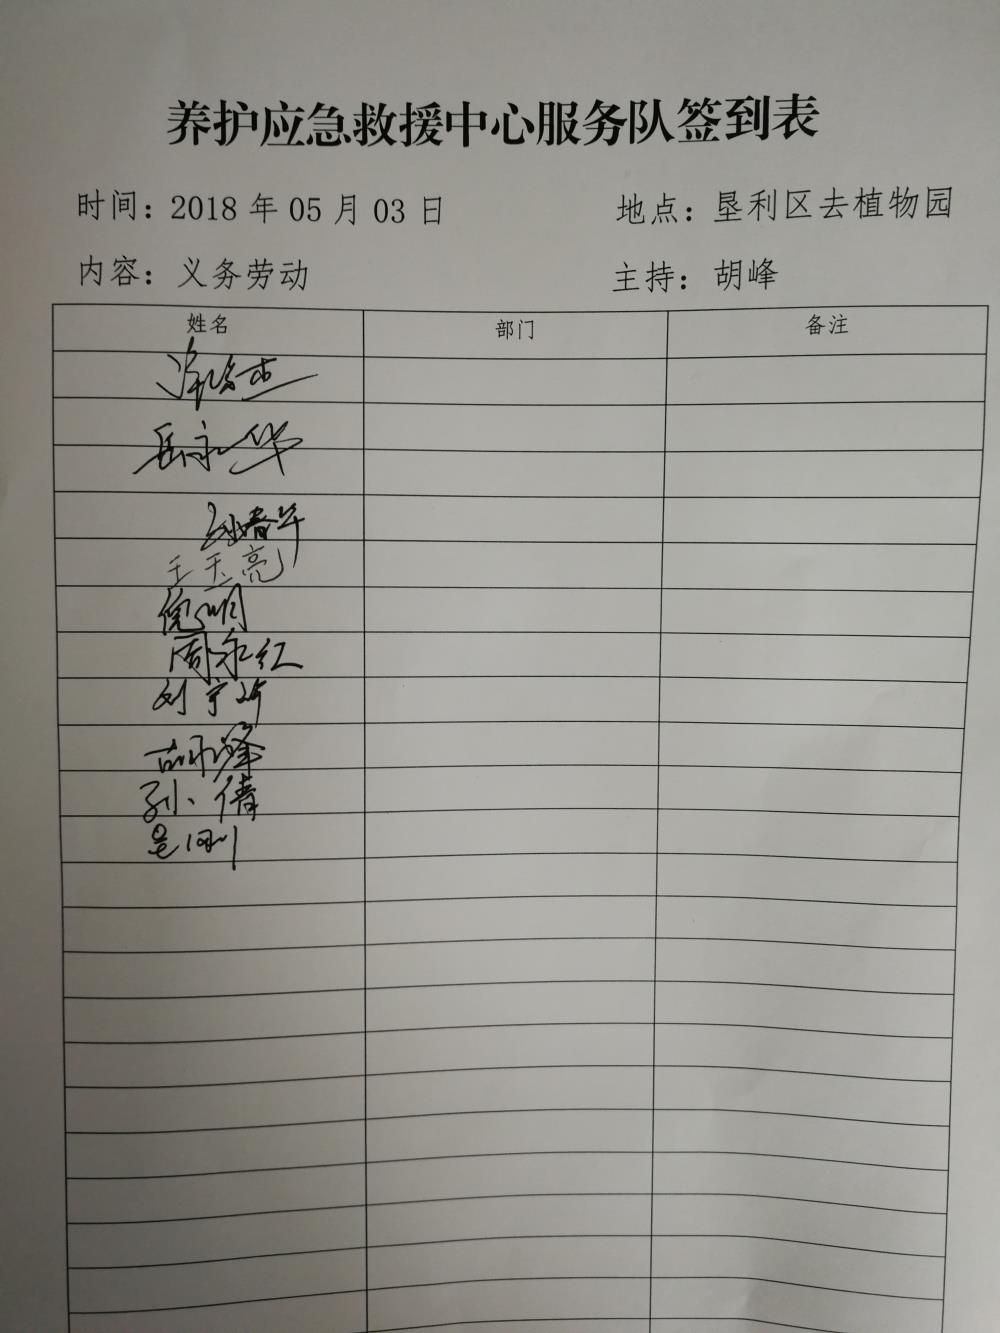 养护应急救援中心服务队签到表
时间：2018 年 05 月 03 日 地点：垦利区去植物园
内容：义务劳动 主持：胡峰
姓名 部门 备注
岳永华
春华
王玉亮
倪明
周永红
刘
胡峰
孙倩
刚